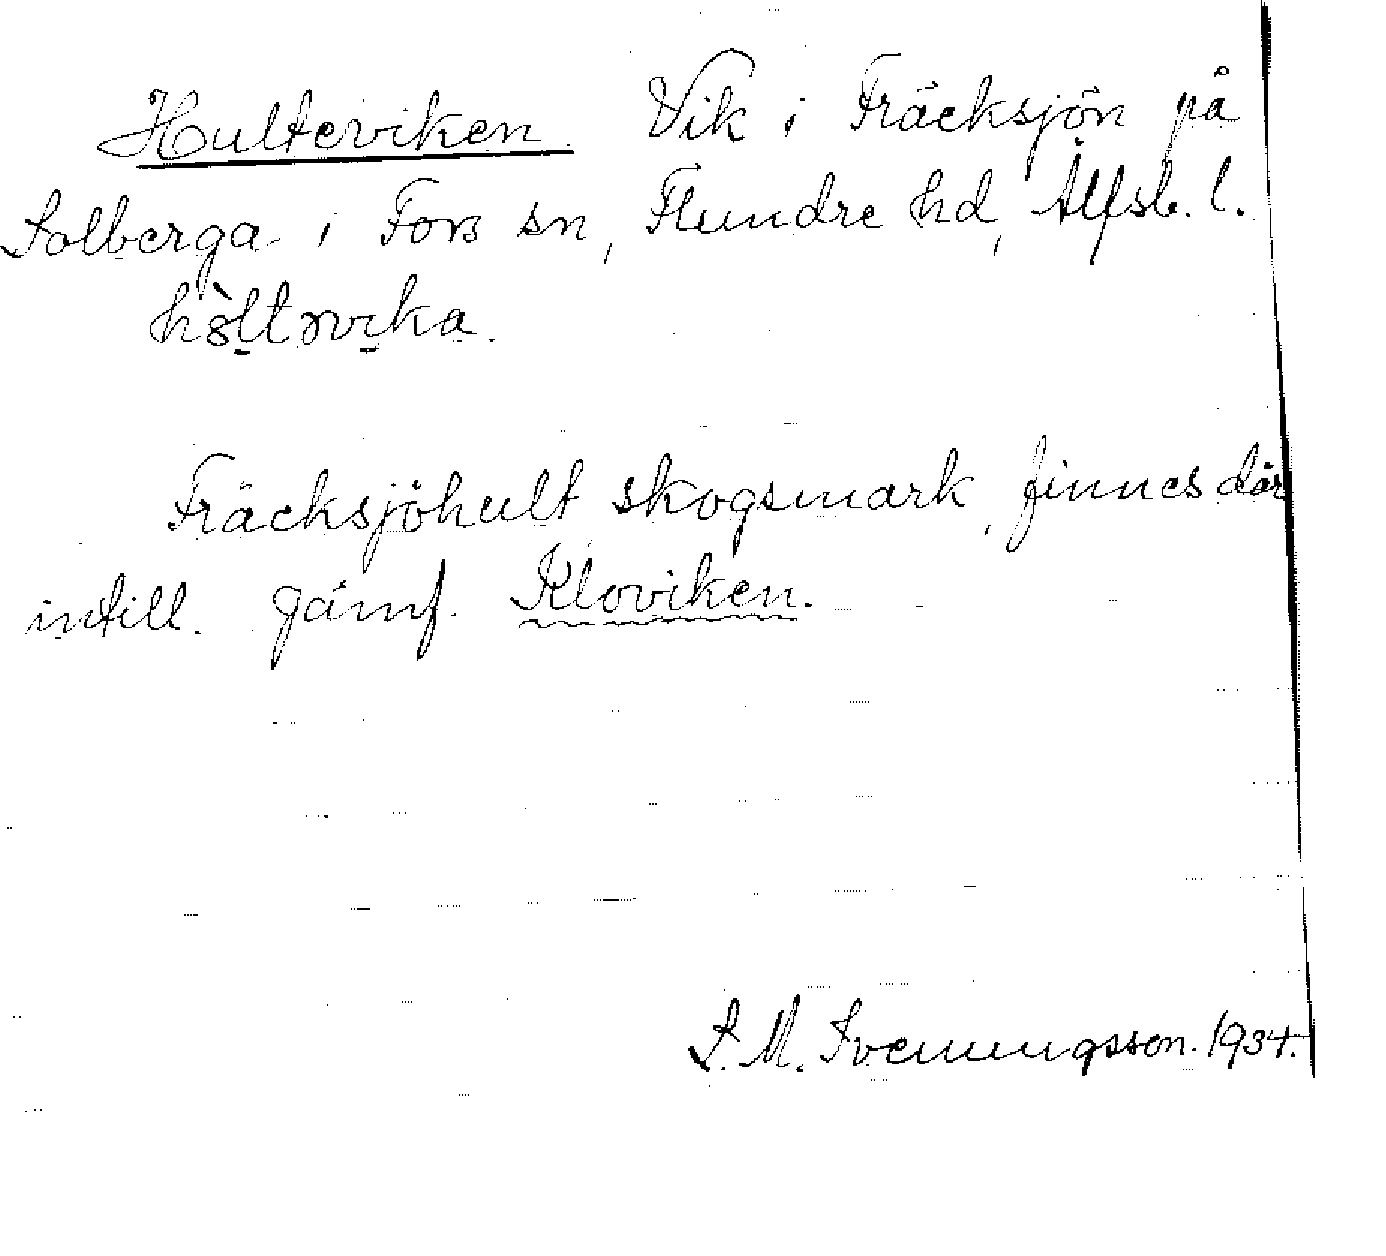 Hulteviken. Vik i Fräcksjön på
Solberga i Fors sn, Flundre hd, Älfsb. l.
hòltəvika.
Fräcksjöhult skogsmark, finnes där
intill. Jämf. Kloviken.
S. M. Svenungsson. 1934.